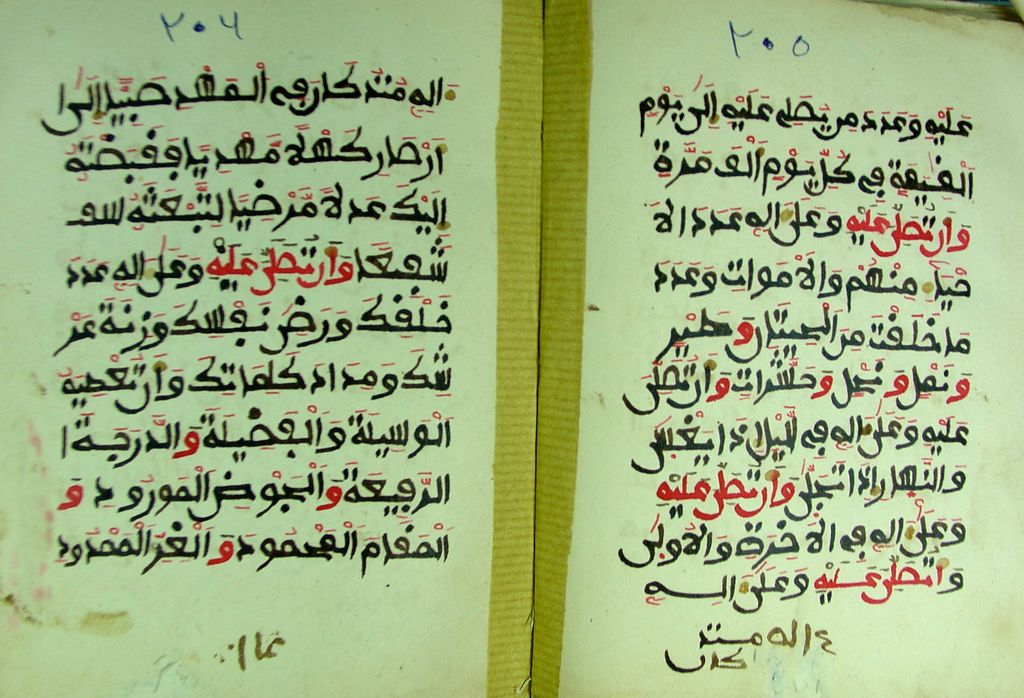 ٢٠٥
عليه وعدد من يصلى عليه إلى يوم
القيمة في كل يوم ألف مرة
وان تصلى عليه وعلى اله عدد الا
حياء منهم والاموات وعدد
ما خلقت من الحيتان وطير
ونمل ونحل وحشرات وان تصلى
عليه وعلى اله في الليل اذا يغشى
والنهار اذا تجلى وان تصلى عليه
وعلى اله في الاخرة والاولى
وان تصلى عليه وعلى اله
اله منذ
كان
٢٠٦
اله منذ كان في المهد صبيا الى ا
ن صار كهلا مهديا فقبضته
اليك عدلا مرضيا لتبعثه
شفيعا وان تصلى عليه وعلى اله عدد
خلقك ورضى نفسك وزنة عر
شك ومداد كلماتك وان تعطيه
الوسيلة والفضيلة والدرجة ا
الرفيعة والحوض المورود و
المقام المحمود والعز الممدود